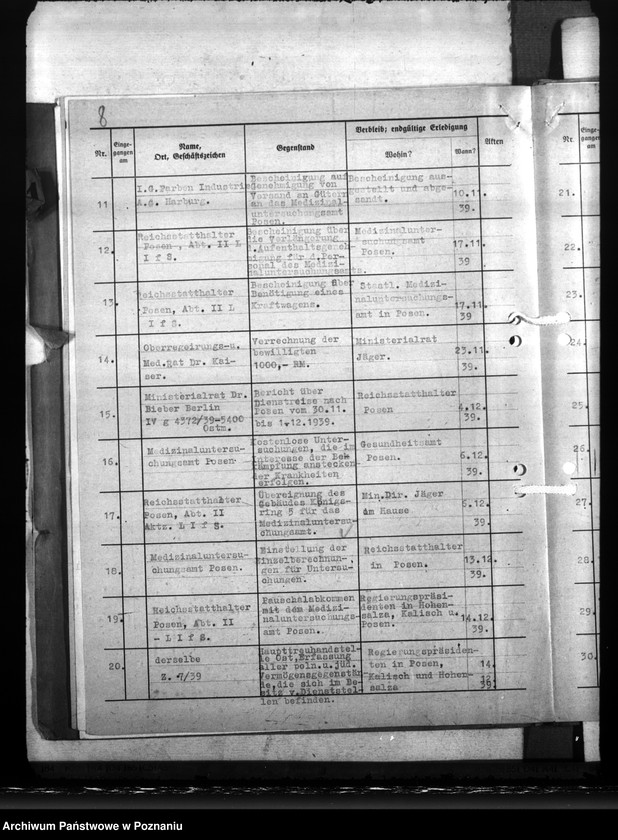 8
Nr.
Einge-
gangen
am
Name,
Ort, Geschäftszeichen
Gegenstand
Verbleib; endgültige Erledigung
Wohin?
Wann?
Akten
11
I.G.Farben Industrie
A.G. Harburg.
Bescheinigung auf
Genehmigung von
Versand an Gütern
an das Medizinal-
untersuchungsamt
Posen.
Bescheinigung aus-
gestellt und abge-
sandt.
10.11.
39.
12.
Reichsstatthalter
Posen, Abt. II L
I f S.
Bescheinigung über
die Verlängerung
d.Aufenthaltsgeneh-
migung für d.Per-
sonal des Medizi-
naluntersuchungsamts.
Medizinalunter-
suchungsamt
Posen.
17.11.
39
13.
Reichsstatthalter
Posen, Abt. II L
I f S.
Bescheinigung über
Benötigung eines
Kraftwagens.
Staatl. Medizi-
naluntersuchungs-
amt in Posen.
17.11.
39
14.
Oberregeirungs-u.
Med.Rat Dr. Kai-
ser.
Verrechnung der
bewilligten
1000,- RM.
Ministerialrat
Jäger.
23.11.
39.
15.
Ministerialrat Dr.
Bieber Berlin
IV g 4372/39-5400
Ostm.
Bericht über
Dienstreise nach
Posen vom 30.11.
bis 1.12.1939.
Reichsstatthalter
Posen
4.12.
39.
16.
Medizinaluntersu-
chungsamt Posen.
Kostenlose Unter-
suchungen, die im
Interesse der Bek
kämpfung anstecken-
der Krankheiten
erfolgen.
Gesundheitsamt
Posen.
6.12.
39.
17.
Reichsstatthalter
Posen, Abt. II
Aktz. L I f S.
Übereignung des
Gebäudes Königs-
ring 5 für das
Medizinaluntersu-
chungsamt.
Min.Dir. Jäger
im Hause
5.12.
39.
18.
Medizinaluntersu-
chungsamt Posen.
Einstellung der
Einzelberechnun-
gen für Untersu-
chungen.
Reichsstatthalter
in Posen.
13.12.
39.
19.
Reichsstatthalter
Posen, Abt. II
- L I f S.
Pauschalabkommen
mit dem Medizi-
naluntersuchungs-
amt Posen.
Regierungspräsi-
denten in Hohen-
salza, Kalisch u.
Posen.
14.12.
39.
20.
derselbe
Z. 7/39
Haupttreuhandstel-
le Ost, Erfassung
aller poln.u.jüd.
Vermögensgegenstän-
de, die sich im Be-
sitz v.Dienststel-
len befinden.
Regierungspräsiden-
ten in Posen,
Kalisch und Hohen-
salza
14.
12.
39.
Nr.
Einge-
gangen
am
21.
22.
23.
24.
25.
26.
27.
28.
29.
30.
Archiwum Państwowe w Poznaniu